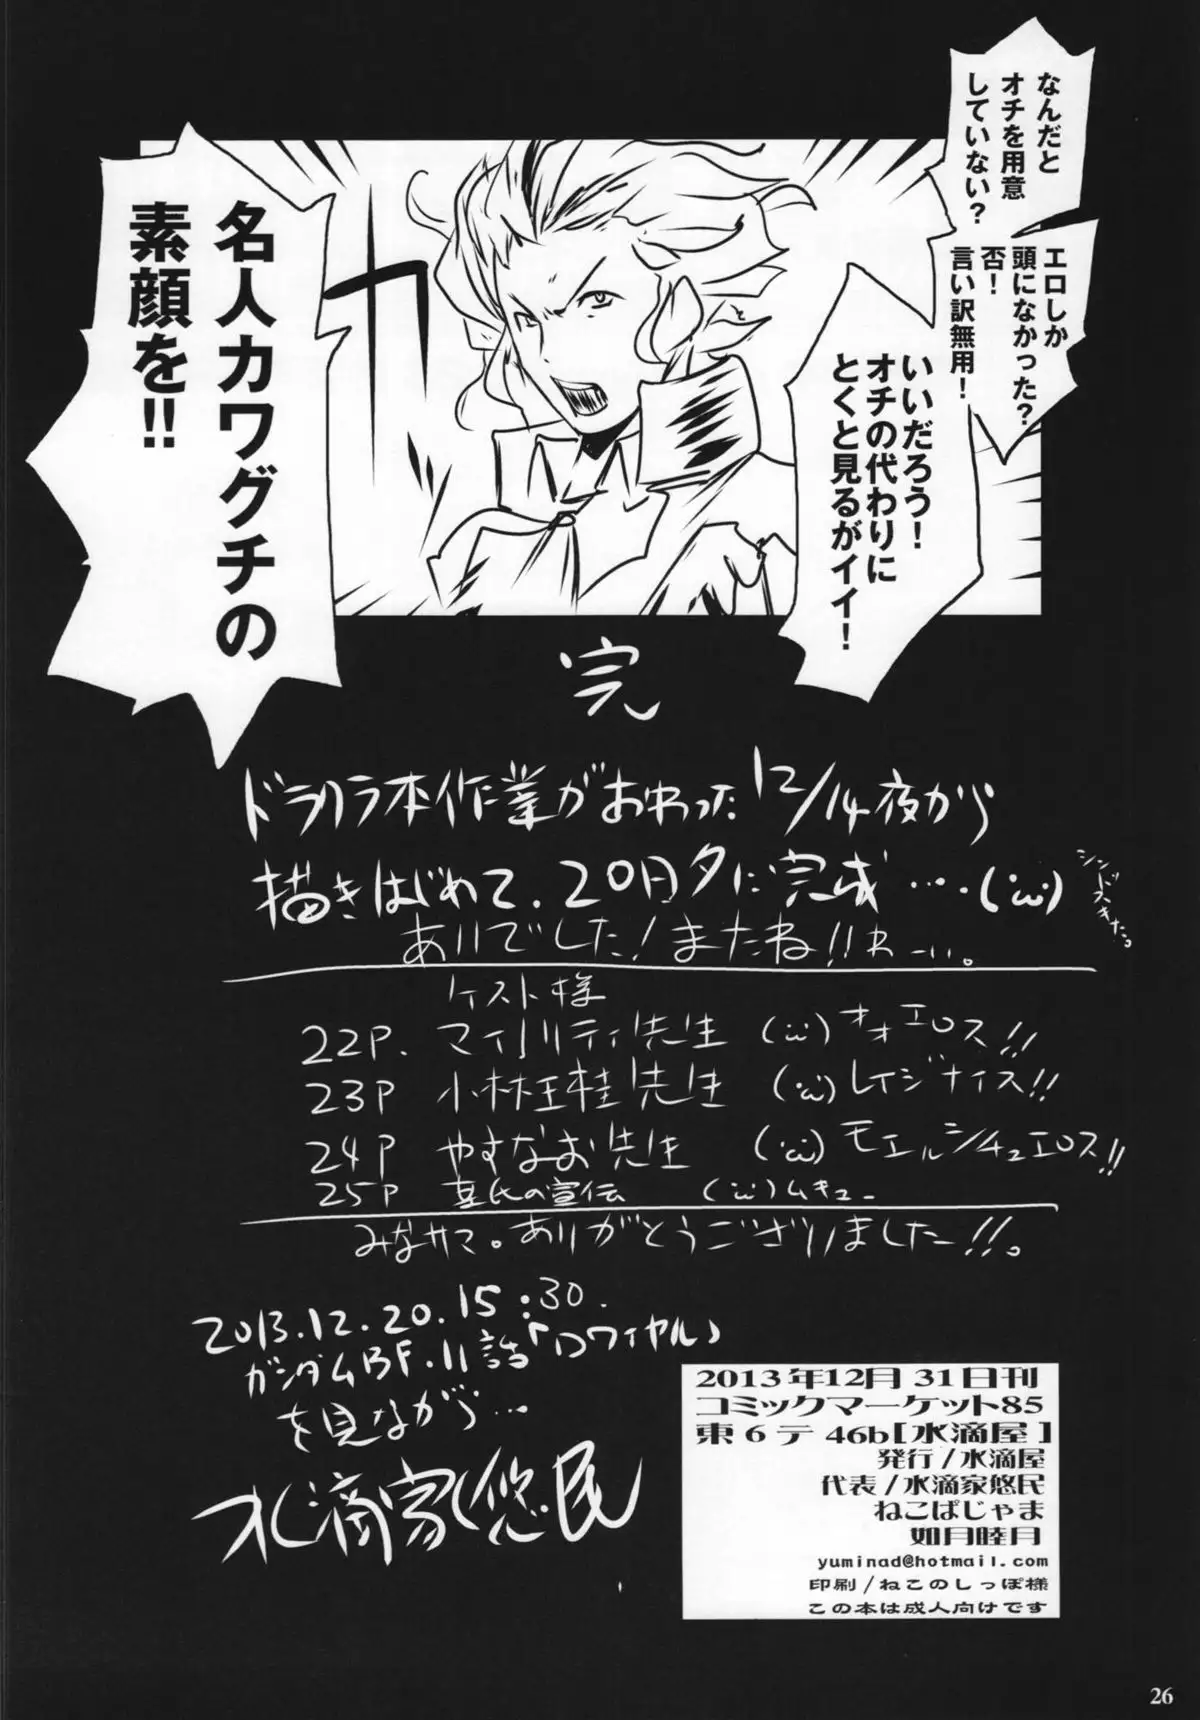 なんだと
オチを用意
していない?
エロしか
頭になかった?
否!
言い訳無用!
いいだろう!
オチの代わりに
とくと見るがイイ!
名人カワグチの
素顔を!!
完
ドラハラ本作業がおわった12/14夜から
描きはじめて、20日夕に完成‥‥(´ω`)
ありでした!またね!!わーい。
ゲスト様
22P. マイノリティ先生 (´ω`)オオエロス!!
23P 小林王桂先生 (´ω`)レイジナイス!!
24P やすなお先生 (´ω`)モエルシチュエロス!!
25P 宣伝 (´ω`)ムキュー
みなサマ。ありがとうございました!!。
2013.12.20.15:30.
ガンダムBF.11話「ロワイヤル」
を見ながら…
水滴家悠民
2013年12月31日刊
コミックマーケット85
東6テ46b[水滴屋]
発行/水滴屋
代表/水滴家悠民
ねこぱじゃま
如月睦月
yuminad@hotmail.com
印刷/ねこのしっぽ様
この本は成人向けです
26